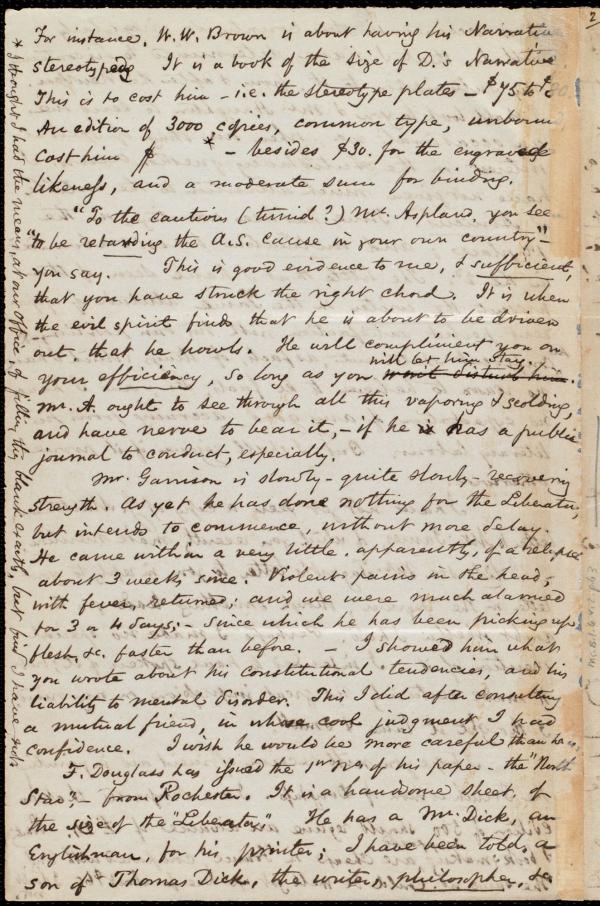 For instance, W. W. Brown is about having his Narrative
stereotyped. It is a book of the size of D.'s Narrative
This is to cost him - i.e. the stereotype plates - $75 to
An edition of 3000 copies, common type, unbound
cost him $ * - besides $30. for the engraved
likeness, and a moderate sum for binding.
"To the cautious (timid?) Mr. Aspland, you see
"to be retarding the A.S. cause in your own country" -
you say. This is good evidence to me, & sufficient,
that you have struck the right chord. It is when
the evil spirit finds that he is about to be driven
out, that he howls. He will compliment you on
will let him stay.
your efficiency, so long as you
Mr. A. ought to see through all this vaporing & scolding,
and have nerve to bear it, - if he has a public
journal to conduct, especially.
Mr. Garrison is slowly - quite slowly - recovering
strength. As yet he has done nothing for the Liberator,
but intends to commence, without more delay.
He came within a very little, apparently, of a relapse
about 3 weeks since. Violent pains in the head,
with fever, returned; and we were much alarmed
for 3 or 4 days; - since which he has been picking up
flesh, &c. faster than before. - I showed him what
you wrote about his constitutional tendencies, and his
liability to mental disorder. This I did after consulting
a mutual friend, in whose cool judgment I had
confidence. I wish he would be more careful than he is.
F. Douglass has issued the 1st No. of his paper - the "North
Star" - from Rochester. It is a handsome sheet, of
the size of the "Liberator." He has a Mr. Dick, an
Englishman, for his printer; I have been told, a
son of Thomas Dick, the writer, philosopher, &c
* I thought I had the means, at our office, of filling this blank exactly, but find I have not.
2